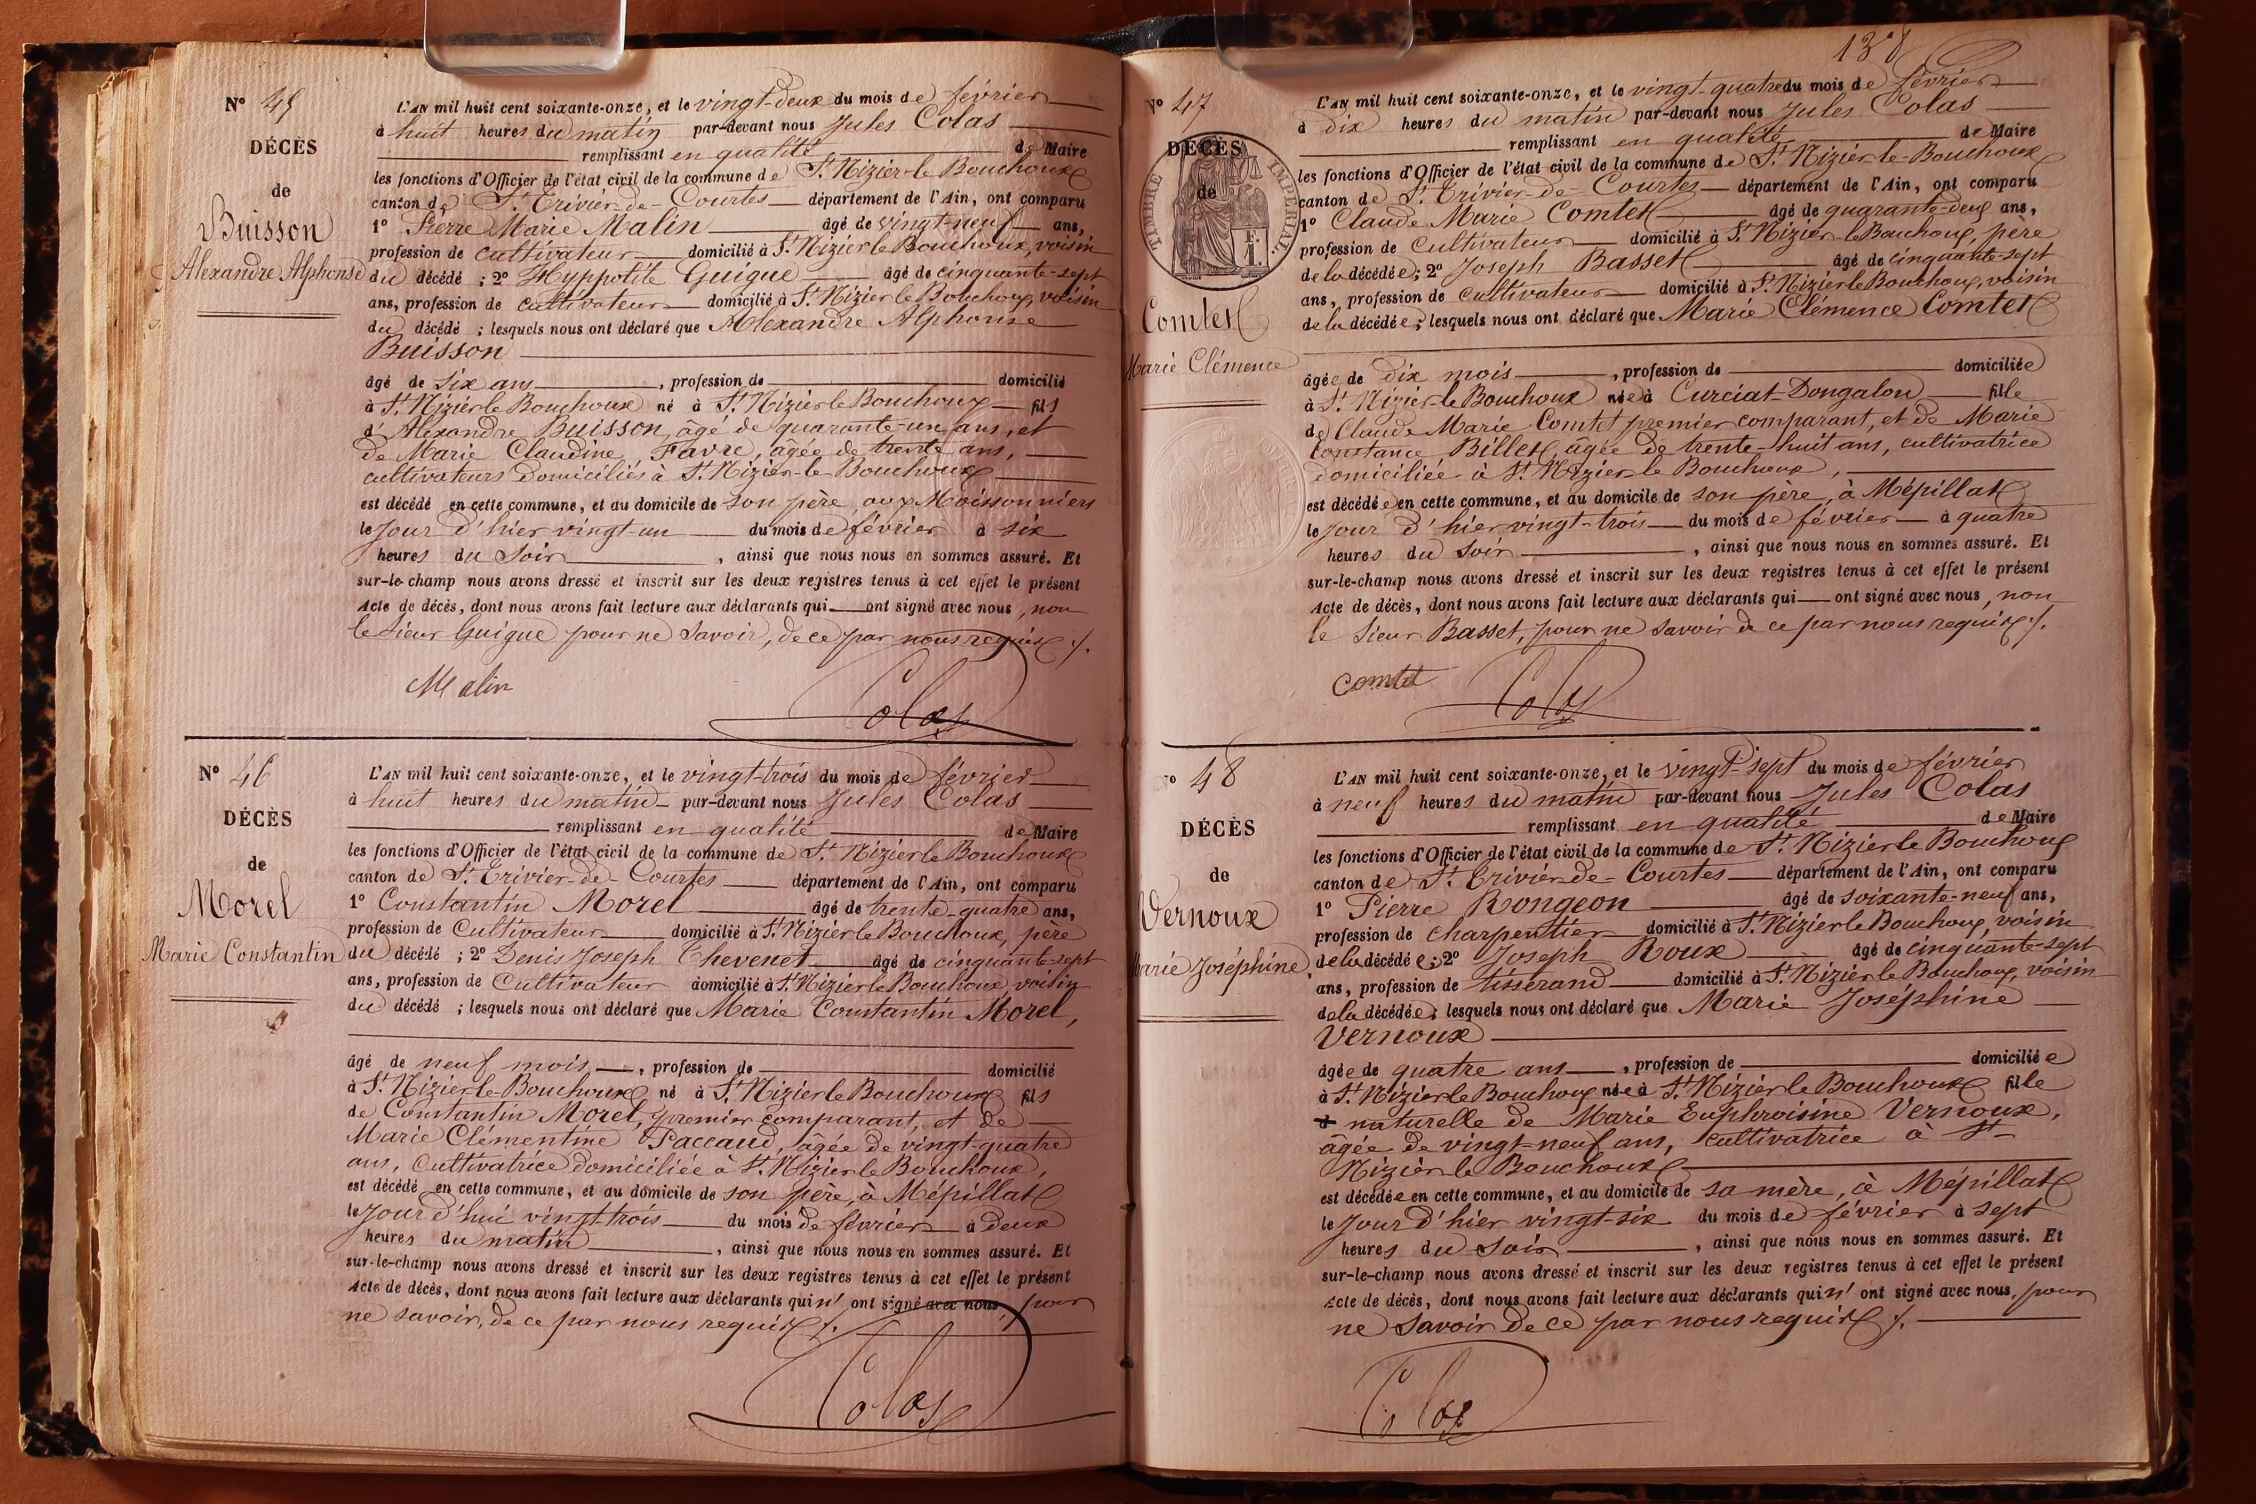 N° 45
DÉCÈS
de
Buisson
Alexandre Alphonse
L'AN mil huit cent soixante-onze, et le vingt-deux du mois de février
à huit heures du matin par-devant nous Jules Colas
remplissant en qualité de Maire
les fonctions d'Officier de l'état civil de la commune de St. Nizier-le-Bouchoux
canton de St. Trivier-de-Courtes département de l'Ain, ont comparu
1° Pierre Marie Malin âgé de vingt-neuf ans,
profession de cultivateur domicilié à St. Nizier le Bouchoux, voisin
du décédé ; 2° Hyppolite Guigue âgé de cinquante-sept
ans, profession de cultivateur domicilié à St. Nizier le Bouchoux, voisin
du décédé ; lesquels nous ont déclaré que Alexandre Alphonse
Buisson
âgé de six ans, profession de domicilié
à St. Nizier le Bouchoux né à St. Nizier le Bouchoux fils
d'Alexandre Buisson, âgé de quarante-un ans, et
de Marie Claudine Favre, âgée de trente ans,
cultivateurs domiciliés à St. Nizier-le-Bouchoux
est décédé en cette commune, et au domicile de son père, aux Moissonniers
le jour d'hier vingt-un du mois de février à six
heures du soir, ainsi que nous nous en sommes assuré. Et
sur-le-champ nous avons dressé et inscrit sur les deux registres tenus à cet effet le présent
Acte de décès, dont nous avons fait lecture aux déclarants qui ont signé avec nous, non
le sieur Guigue pour ne savoir, de ce par nous requis ./.
Malin
Colas
N° 46
DÉCÈS
de
Morel
Marie Constantin
L'AN mil huit cent soixante-onze, et le vingt-trois du mois de février
à huit heures du matin par-devant nous Jules Colas
remplissant en qualité de Maire
les fonctions d'Officier de l'état civil de la commune de St. Nizier le Bouchoux
canton de St. Trivier-de-Courtes département de l'Ain, ont comparu
1° Constantin Morel âgé de trente-quatre ans,
profession de cultivateur domicilié à St. Nizier le Bouchoux, père
du décédé ; 2° Denis Joseph Chevenet âgé de cinquante-sept
ans, profession de cultivateur domicilié à St. Nizier le Bouchoux, voisin
du décédé ; lesquels nous ont déclaré que Marie Constantin Morel,
âgé de neuf mois, profession de domicilié
à St. Nizier-le-Bouchoux né à St. Nizier le Bouchoux fils
de Constantin Morel, premier comparant, et de
Marie Clémentine Paccaud, âgée de vingt-quatre
ans, cultivatrice domiciliée à St. Nizier le Bouchoux,
est décédé en cette commune, et au domicile de son père, à Mépillat
le jour d'hui vingt-trois du mois de février à deux
heures du matin, ainsi que nous nous en sommes assuré. Et
sur-le-champ nous avons dressé et inscrit sur les deux registres tenus à cet effet le présent
Acte de décès, dont nous avons fait lecture aux déclarants qui n'ont signé avec nous, pour
ne savoir, de ce par nous requis ./.
Colas
138
N° 47
DÉCÈS
de
TIMBRE IMPÉRIAL
1 F.
Comtet
Marie Clémence
L'AN mil huit cent soixante-onze, et le vingt-quatre du mois de février
à dix heures du matin par-devant nous Jules Colas
remplissant en qualité de Maire
les fonctions d'Officier de l'état civil de la commune de St. Nizier-le-Bouchoux
canton de St. Trivier-de-Courtes département de l'Ain, ont comparu
1° Claude Marie Comtet âgé de quarante-deux ans,
profession de cultivateur domicilié à St. Nizier-le Bouchoux, père
de la décédée ; 2° Joseph Basset âgé de cinquante-sept
ans, profession de cultivateur domicilié à St. Nizier le Bouchoux, voisin
de la décédée ; lesquels nous ont déclaré que Marie Clémence Comtet
âgée de dix mois, profession de domiciliée
à St. Nizier-le Bouchoux née à Curciat-Dongalon fille
de Claude Marie Comtet premier comparant, et de Marie
Constance Billet, âgée de trente-huit ans, cultivatrice
domiciliée à St. Nizier le Bouchoux,
est décédée en cette commune, et au domicile de son père, à Mépillat
le jour d'hier vingt-trois du mois de février à quatre
heures du soir, ainsi que nous nous en sommes assuré. Et
sur-le-champ nous avons dressé et inscrit sur les deux registres tenus à cet effet le présent
Acte de décès, dont nous avons fait lecture aux déclarants qui ont signé avec nous, non
le sieur Basset, pour ne savoir de ce par nous requis ./.
Comtet
Colas
N° 48
DÉCÈS
de
Vernoux
Marie Joséphine
L'AN mil huit cent soixante-onze, et le vingt-sept du mois de février
à neuf heures du matin par-devant nous Jules Colas
remplissant en qualité de Maire
les fonctions d'Officier de l'état civil de la commune de St. Nizier le Bouchoux
canton de St. Trivier-de-Courtes département de l'Ain, ont comparu
1° Pierre Rongeon âgé de soixante-neuf ans,
profession de charpentier domicilié à St. Nizier le Bouchoux, voisin
de la décédée ; 2° Joseph Roux âgé de cinquante-sept
ans, profession de tisserand domicilié à St. Nizier le Bouchoux, voisin
de la décédée ; lesquels nous ont déclaré que Marie Joséphine
Vernoux
âgée de quatre ans, profession de domiciliée
à St. Nizier le Bouchoux née à St. Nizier le Bouchoux fille
naturelle de Marie Euphroisine Vernoux,
âgée de vingt-neuf ans, cultivatrice à St-
Nizier le Bouchoux
est décédée en cette commune, et au domicile de sa mère, à Mépillat
le jour d'hier vingt-six du mois de février à sept
heures du soir, ainsi que nous nous en sommes assuré. Et
sur-le-champ nous avons dressé et inscrit sur les deux registres tenus à cet effet le présent
Acte de décès, dont nous avons fait lecture aux déclarants qui n'ont signé avec nous, pour
ne savoir de ce par nous requis ./.
Colas